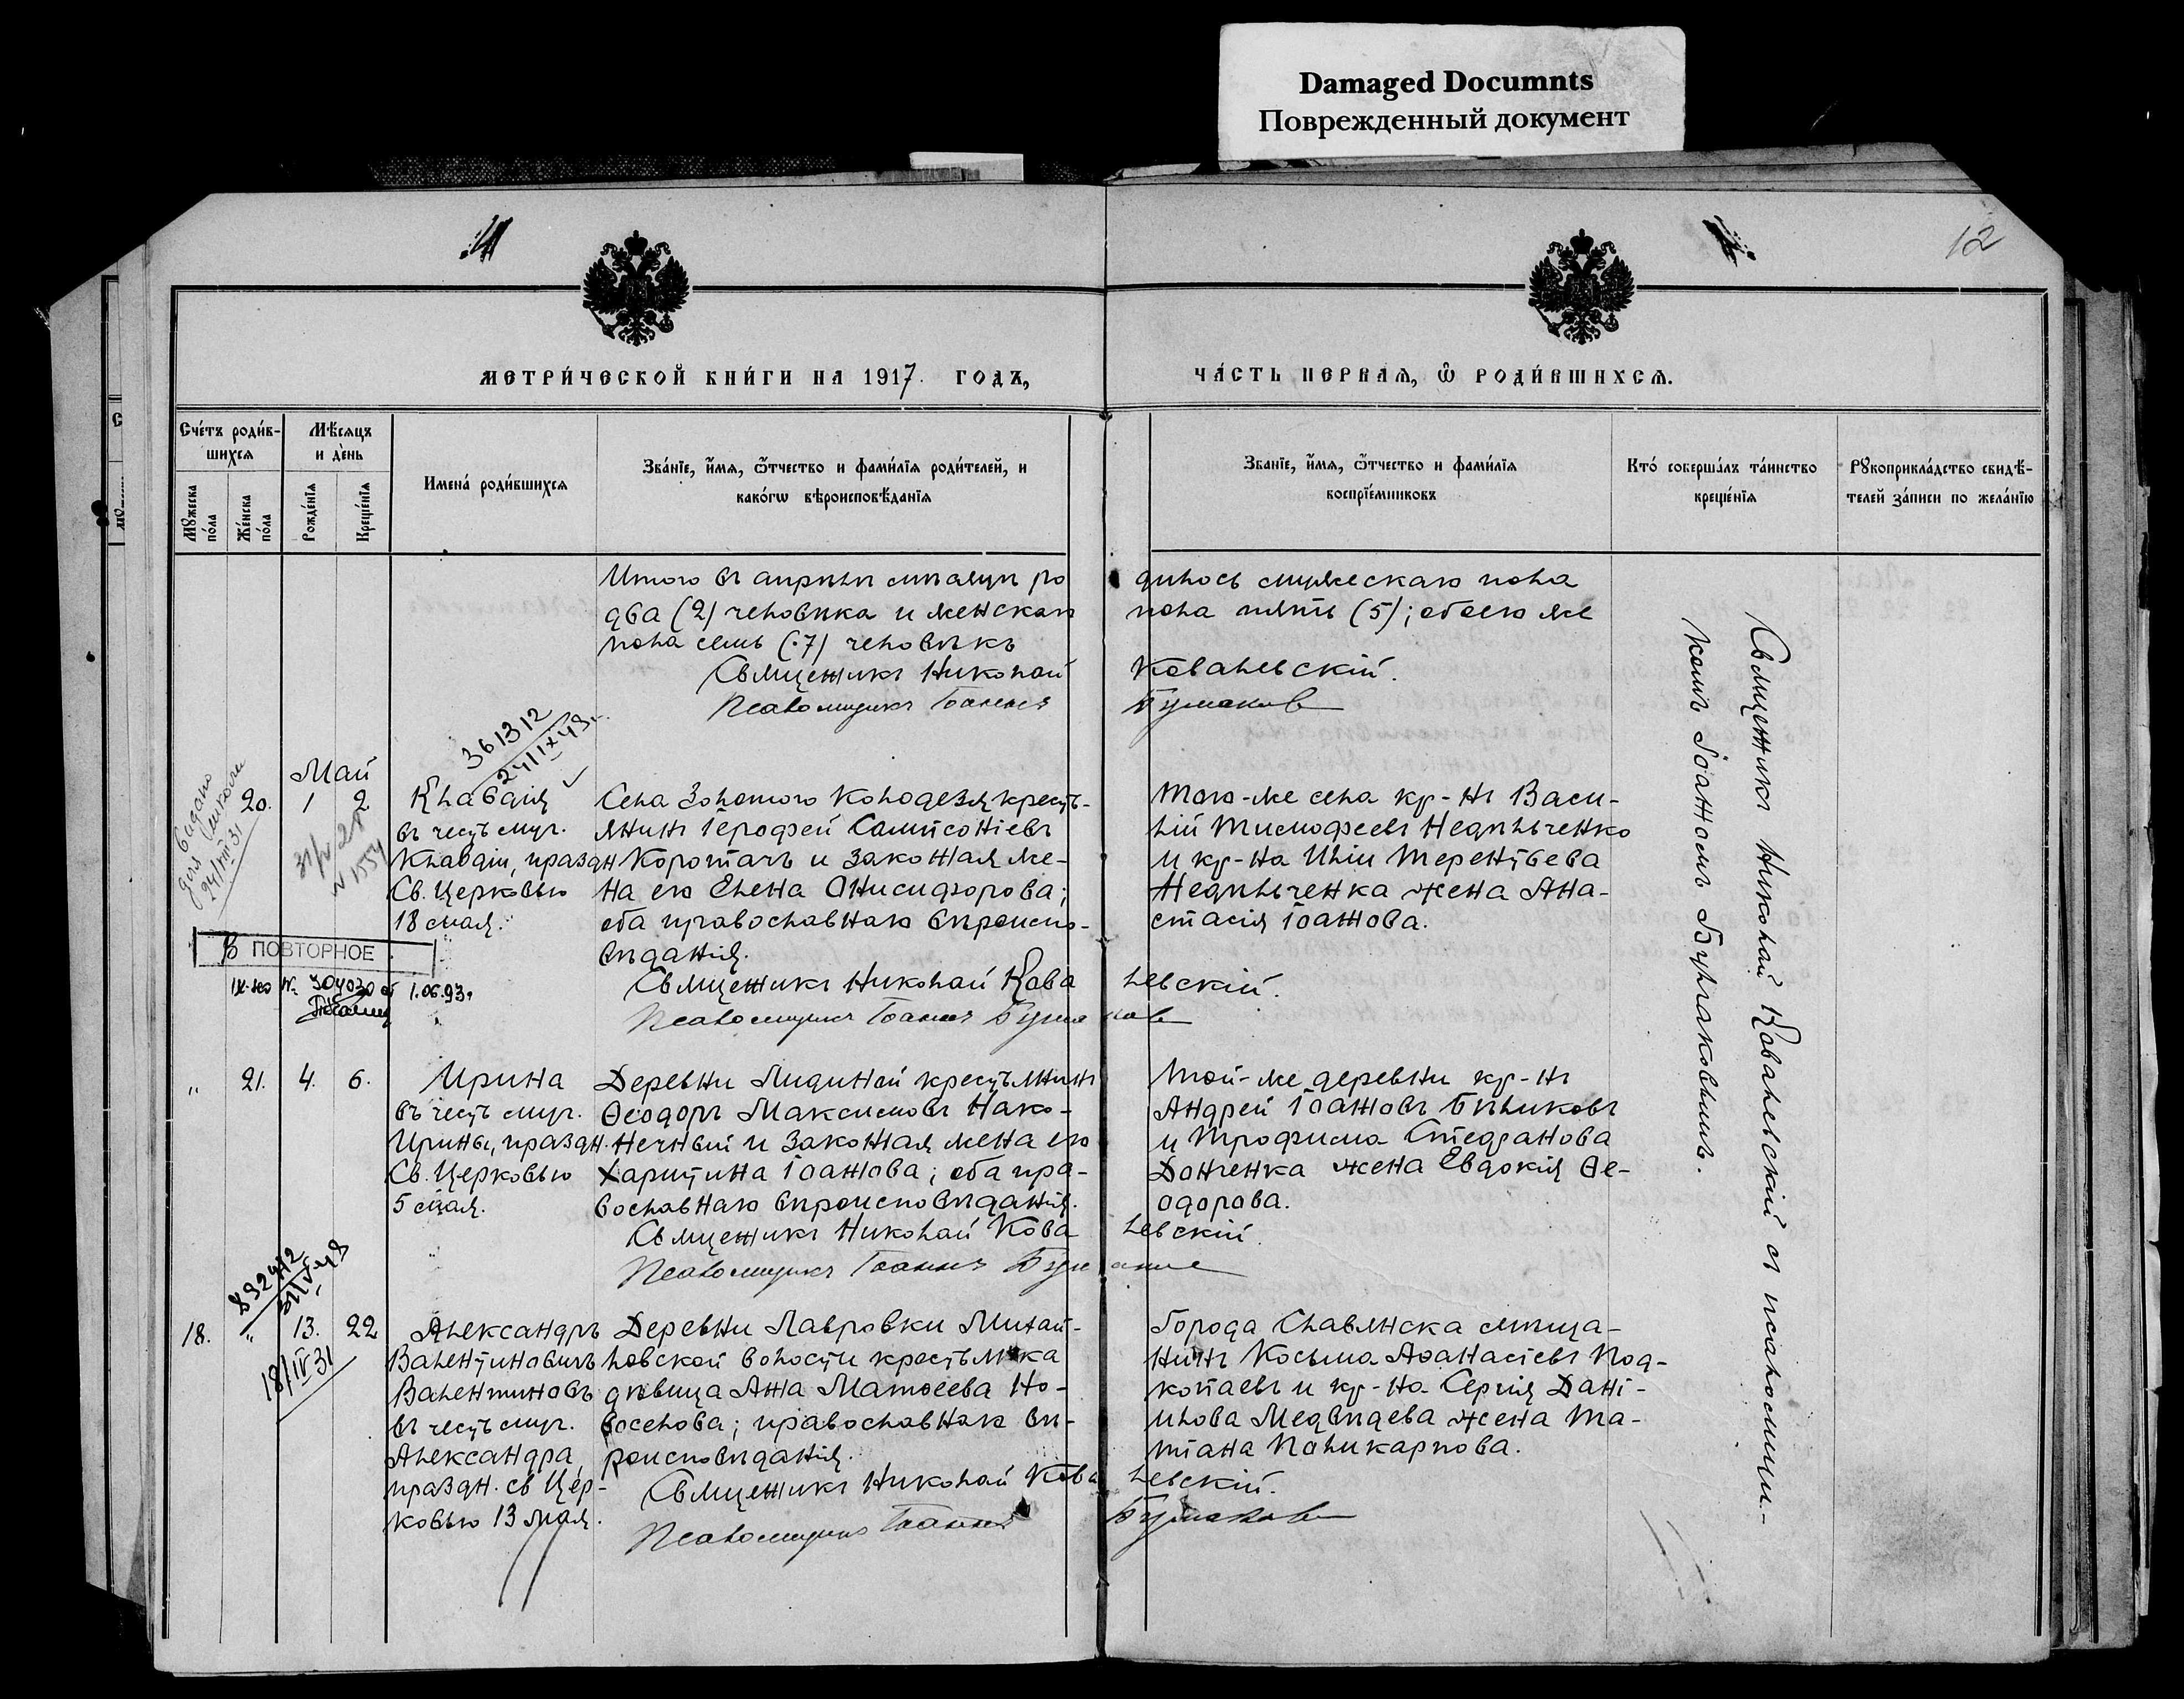 Damaged Documnts
Поврежденный документ
12
МЕТРИ́ЧЕСКОЙ КНИ́ГИ НА 1917. ГОДЪ,
ЧА́СТЬ ПЕРВАЯ, Ѡ РОДИ́ВШИХСЯ.
Сче́тъ роди́в-
шихся
Мѣ́сяцъ
и де́нь
Му́жеска
по́ла
Же́нска
по́ла
Рожде́нїя
Креще́нїя
Имена́ роди́вшихся
Зва́нїе, и́мя, ѻ́тчество и фами́лїя роди́телей, и
како́гѡ вѣроисповѣ́данїя
Зва́нїе, и́мя, ѻ́тчество и фами́лїя
воспрїе́мниковъ
Кто́ соверша́лъ та́инство
креще́нїя
Рꙋкоприкла́дство свидѣ́-
телей за́писи по жела́нїю
Итого въ апрѣлѣ мѣсяцѣ ро
дилось мужескаго пола
два (2) человѣка и женскаго
пола пять (5); обоего же
пола семь (7) человѣкъ
Священникъ Николай
Ковалевскій.
Псаломщикъ Іоаннъ
Булгаковъ
361312
24/IX 43
Май
20. 1 2
Клавдія
въ честь муч.
Клавдіи, праздн
Св. Церковью
18 мая.
Села Золотого Колодезя кресть-
янинъ Іерофей Сампсоніевъ
Коротачъ и законная же-
на его Елена Онисифорова;
оба православнаго вѣроиспо-
вѣданія.
Священникъ Николай Кова
левскій.
Псаломщикъ Іоаннъ Булгаковъ
Того-же села кр-нъ Васи-
лій Тимофеевъ Недѣльченко
и кр-на Иліи Терентьева
Недѣльченка жена Ана-
стасія Іоаннова.
24/VIII 31
N 1554
ПОВТОРНОЕ
N 304030 от 1.06.93.
" 21. 4. 6.
Ирина
въ честь муч.
Ирины, праздн.
Св. Церковью
5 мая.
Деревни Лидиной крестьянинъ
Ѳеодоръ Максимовъ Нако-
нечный и законная жена его
Харитина Іоаннова; оба пра-
вославнаго вѣроисповѣданія.
Священникъ Николай Кова
левскій.
Псаломщикъ Іоаннъ Булгаковъ
Той-же деревни кр-нъ
Андрей Іоанновъ Бѣликовъ
и Трофима Стефанова
Донченка жена Евдокія Ѳе-
одорова.
18/IV 31
18. " 13. 22
Александръ
Валентиновичъ
Валентиновъ
въ честь муч.
Александра,
праздн. св Цер-
ковью 13 мая.
Деревни Лавровки Михай-
ловской волости крестьянка
дѣвица Анна Матѳеева Но-
воселова; православнаго вѣ-
роисповѣданія.
Священникъ Николай Кова
левскій.
Псаломщикъ Іоаннъ
Булгаковъ
Города Славянска мѣща-
нинъ Косьма Аѳанасіевъ Под-
копаевъ и кр-на Сергія Дані-
илова Медвѣдева жена Та-
тіана Поликарпова.
Священникъ Николай Ковалевскій съ псаломщи-
комъ Іоанномъ Булгаковымъ.